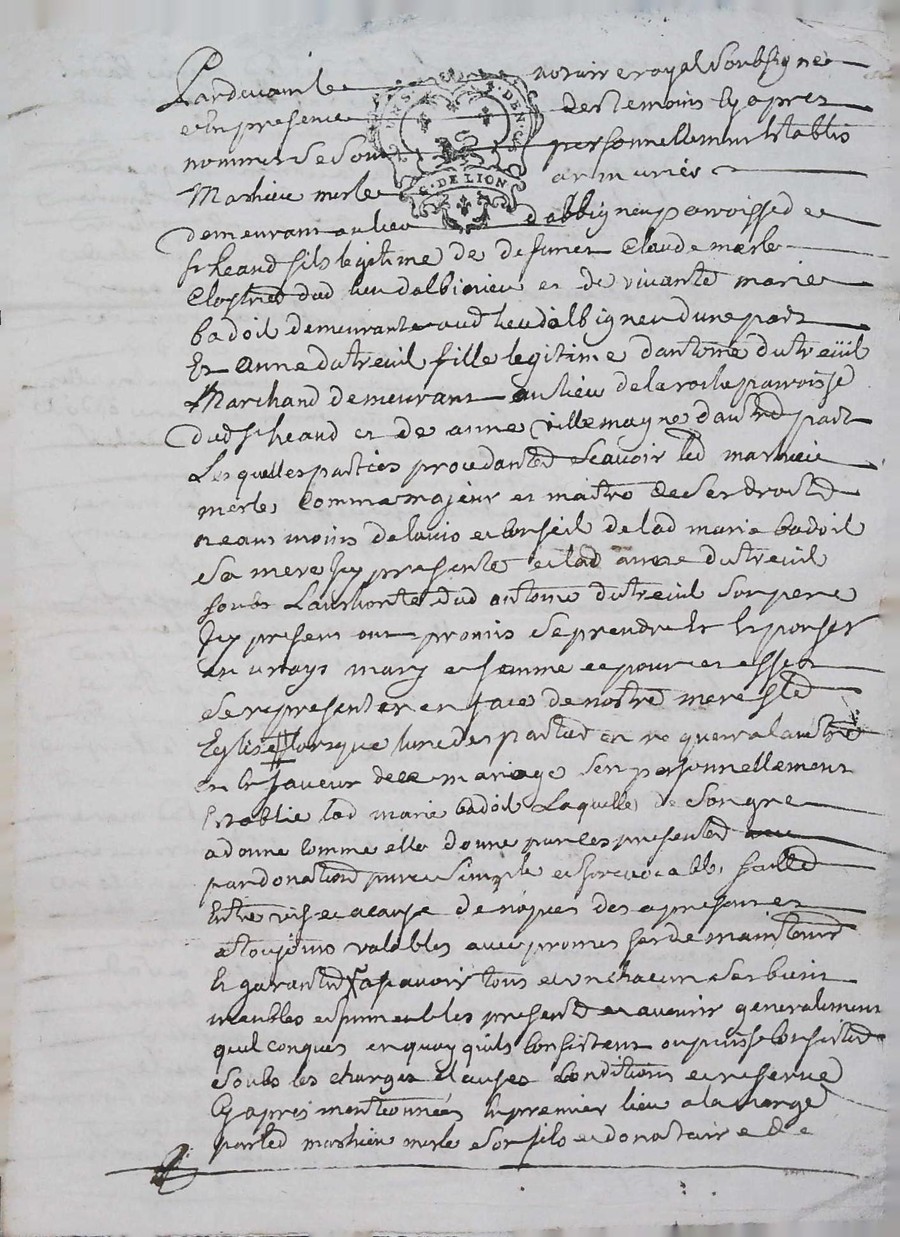 Pardevant le notaire royal soubsigné
et en presence des temoins cy apres
nommes se sont personnellement establis
Mathieu merle armuriér
demeurant au lieu dalbigneu parroisse de
st heand fils legitime de defunct Claude merle
dud lieu dalbigneu et de vivante marie
badoil demeurante aud lieu dalbigneu dune part
Et Anne dutreuil fille legitime dantoine dutreüil
Marchand demeurant au lieu de la roche parroisse
dud st heand et de anne villemagne dautre part
Lesquelles parties procedantes scavoir led mathieu
merle Comme majeur et maitre de ses droits
neans moins de lavis et conseil de lad marie badoil
sa mere icy presente et lad anne dutreuil
soubs Lauthorité dud antoine dutreuil son pere
Icy present ont promis se prendre Et Espouser
en vrays mary et femme et pour cet effet
se representer en face de nostre mere ste
Eglise lorsque lune des parties en requerra lautre
en faveur de ce mariage sest personnellement
establie lad marie badoil Laquelle de son gre
a donne comme elle donne par les presentes
par donation pure simple et irrevocable faitte
Entre vifs et a cause de nopces des a present et
a toujours valables avec promesse de maintenir
Et garantir a scavoir tous et un chacun ses biens
meubles et immeubles presents et avenir generalement
quelconques en quoy quils consistent ou puisse consister
soubs les charges clauses conditions et reserve
Cy apres mentionnées En premier lieu a la charge
par led mathieu merle son fils et donataire de
G. DE LION